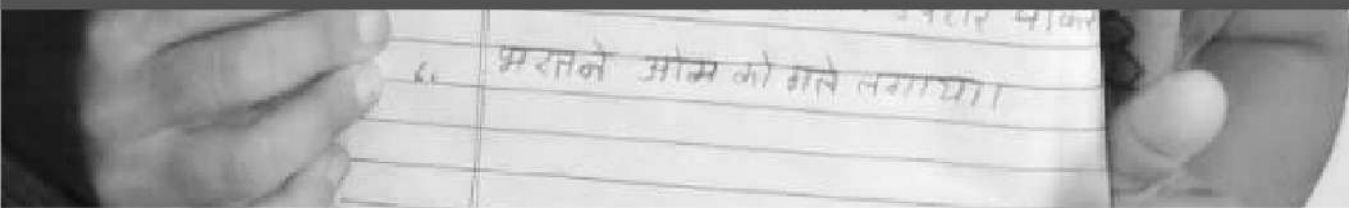 ६. भरतने ओम को गले लगाया।